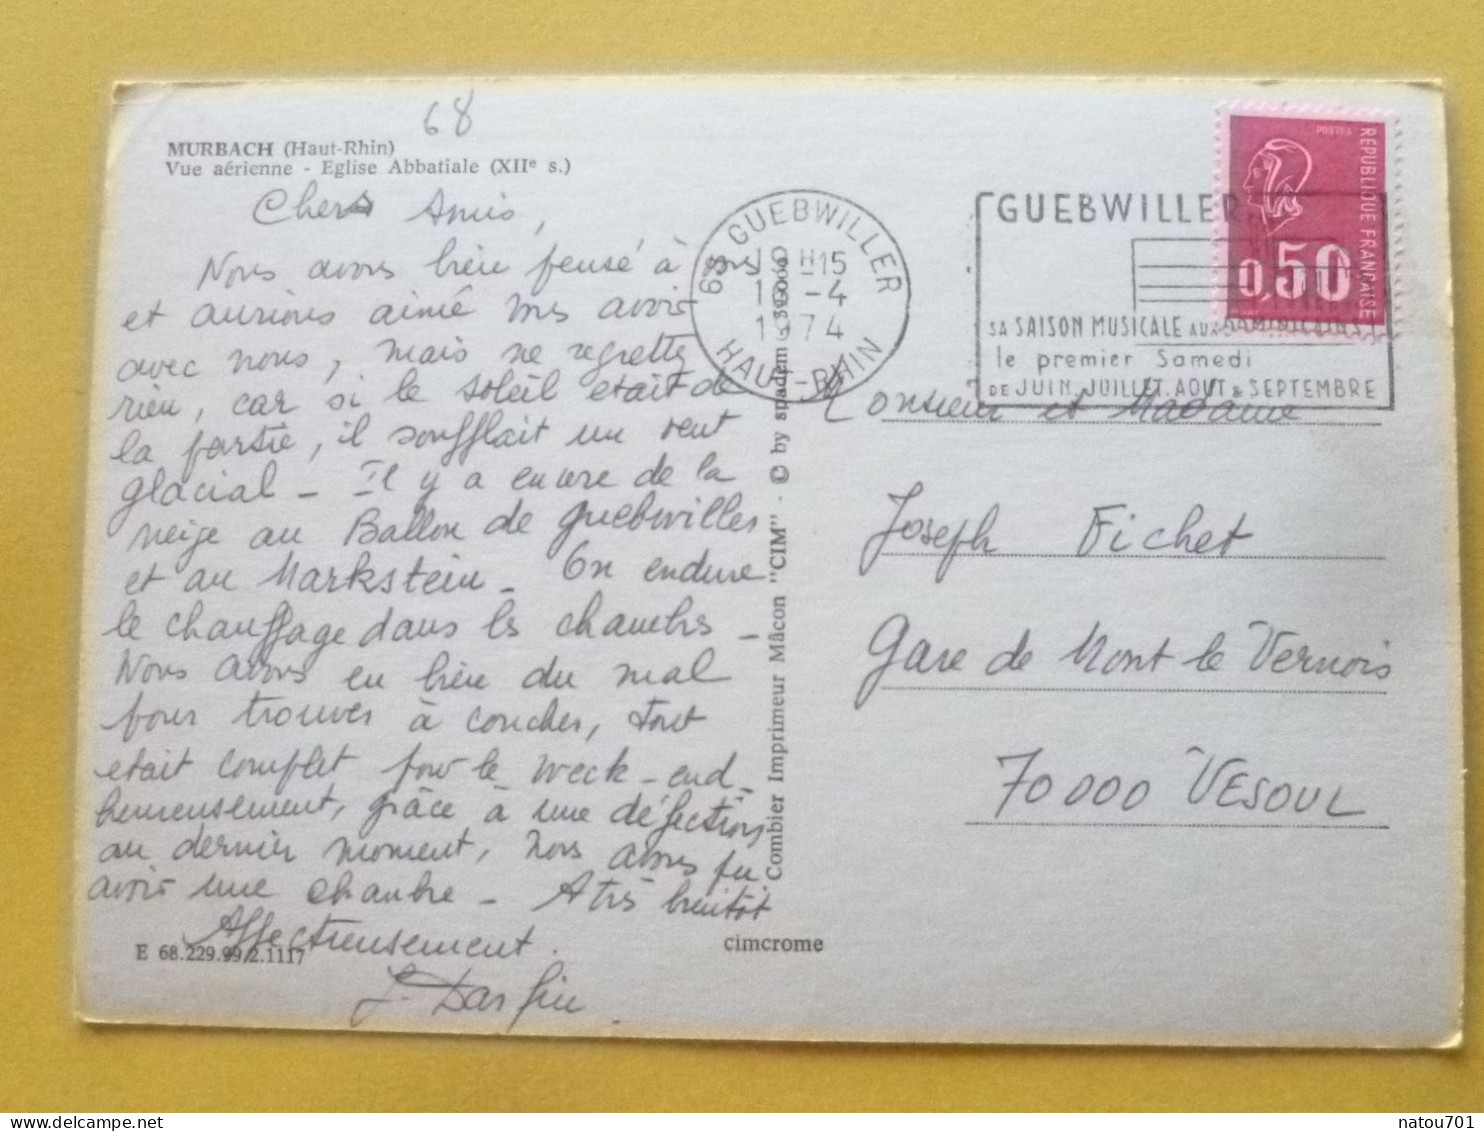 68
MURBACH (Haut-Rhin)
Vue aérienne - Eglise Abbatiale (XIIe s.)
Chers Amis,
Nous avons bien pensé à vous
et aurions aimé vous avoir
avec nous, mais ne regrettez
rien, car si le soleil etait de
la partie, il soufflait un vent
glacial - Il y a encore de la
neige au Ballon de Guebwiller
et au Markstein - On endure
le chauffage dans les chambres -
Nous avons eu bien du mal
pour trouver à coucher, tout
etait complet pour le week-end -
heureusement, grâce à une défection
au dernier moment, nous avons pu
avoir une chambre - A très bientôt
Affectueusement.
E 68.229.99/2.1117
cimcrome
Combier Imprimeur Mâcon "CIM" - © by spadem
68 GUEBWILLER
19 H15
-4
1974
HAUT-RHIN
GUEBWILLER
SA SAISON MUSICALE AUX DOMINICAINS
le premier Samedi
DE JUIN, JUILLET, AOUT & SEPTEMBRE
POSTES
REPUBLIQUE FRANÇAISE
0,50
Monsieur et Madame
Joseph Fichet
Gare de Mont le Vernois
70000 VESOUL
natou701